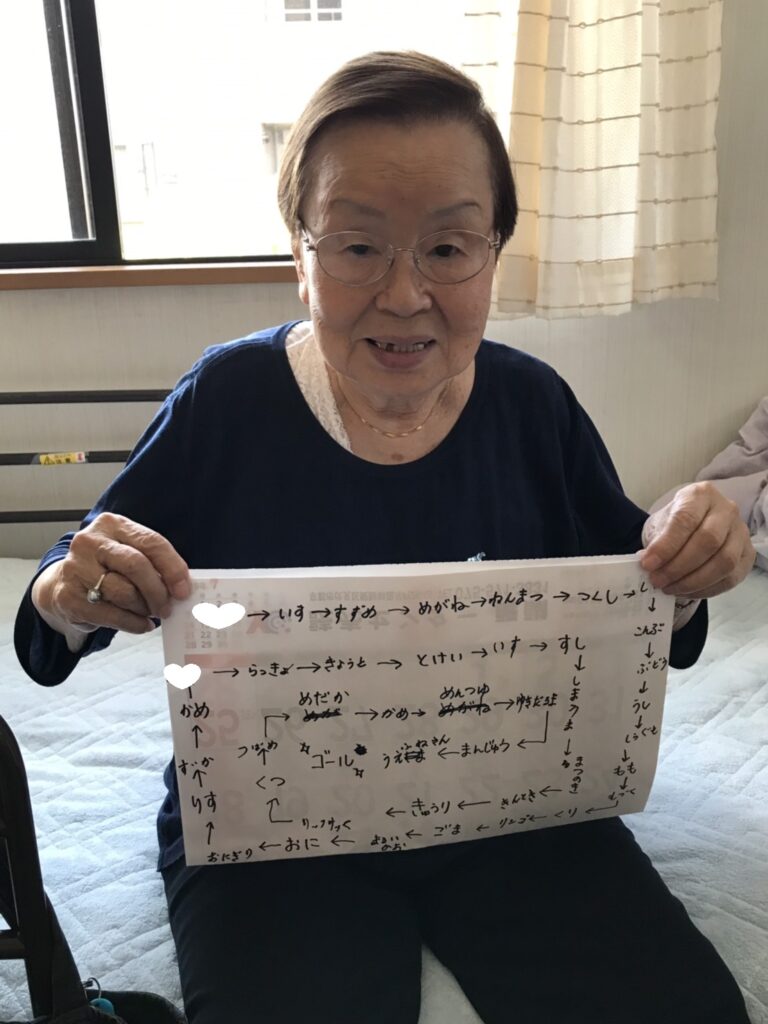 →いす→すずめ→めがね→ねんまつ→つくし→し
↓
こんぶ
↓
ぶどう
↓
うし
↓
↓
もも
↓
←くり
←りんご
←ごま
←
←おに
おにぎり
↑
りす
↑
ずか
↑
かめ
↑
→らっきょ→きょうと→とけい→いす→すし
↓
しまうま
↓
まつのき
↓
きんとき
←きゅうり
←リュックサック
↑
くつ
↑
つばめ
→めだか
→かめ→めんつゆ
→ゆきだるま
←まんじゅう
←うえ さん
ゴール